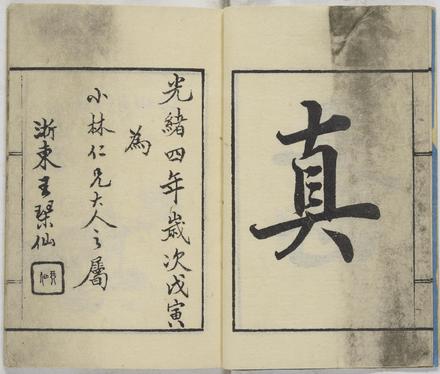 真
光緒四年歲次戊寅
為
小林仁兄大人之屬
浙東王琹仙